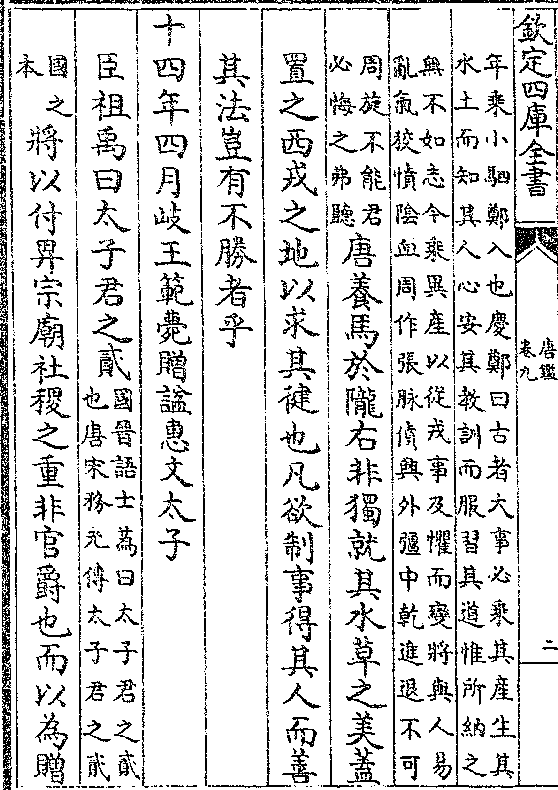 欽定四庫全書
唐鑑
卷九
二
年乘小駟鄭入也慶鄭曰古者大事必乘其產生其
水土而知其人心安其教訓而服習其道惟所納之
無不如志今乘異產以從戎事及懼而變將與人易
亂氣狡憤陰血周作張脉僨興外彊中乾進退不可
周旋不能君
必悔之弗聽
唐養馬於隴右非獨就其水草之美蓋
置之西戎之地以求其徤也凡欲制事得其人而善
其法豈有不勝者乎
十四年四月岐王範薨贈謚惠文太子
臣祖禹曰太子君之貳
國晉語士蒍曰太子君之貳
也唐宋務光傳太子君之貳
國之
本
將以付畀宗廟社稷之重非官爵也而以為贈